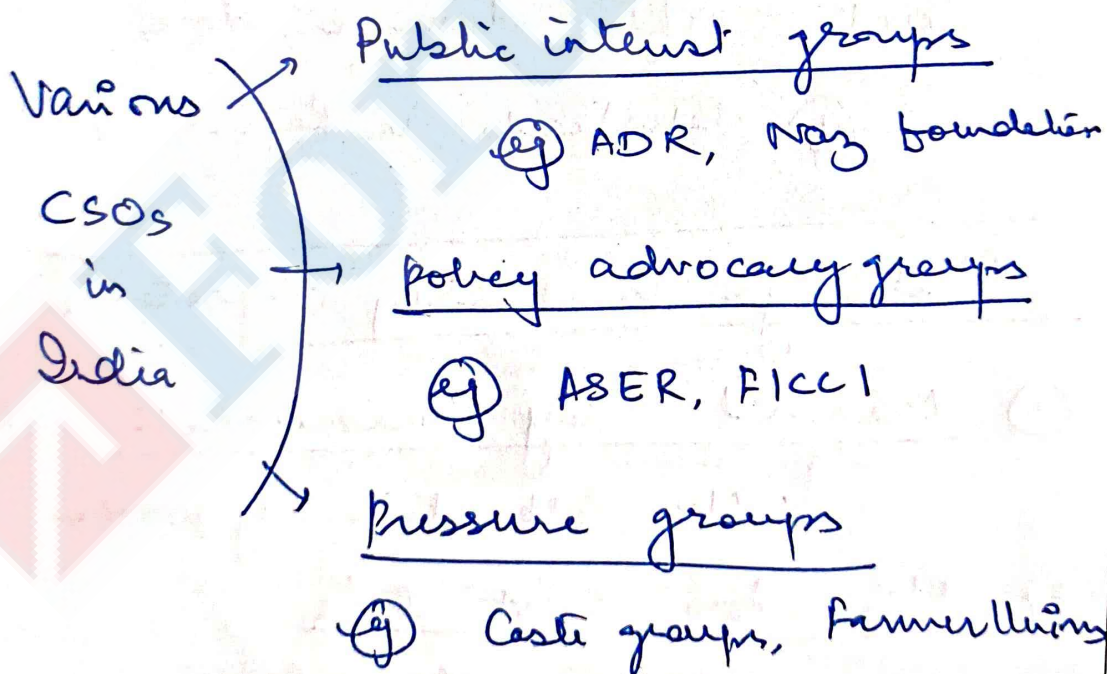 Various
CSOs
in
India
Public interest groups
eg ADR, Naz foundation
policy advocacy groups
eg ASER, FICCI
Pressure groups
eg Caste groups, Farmer Unions